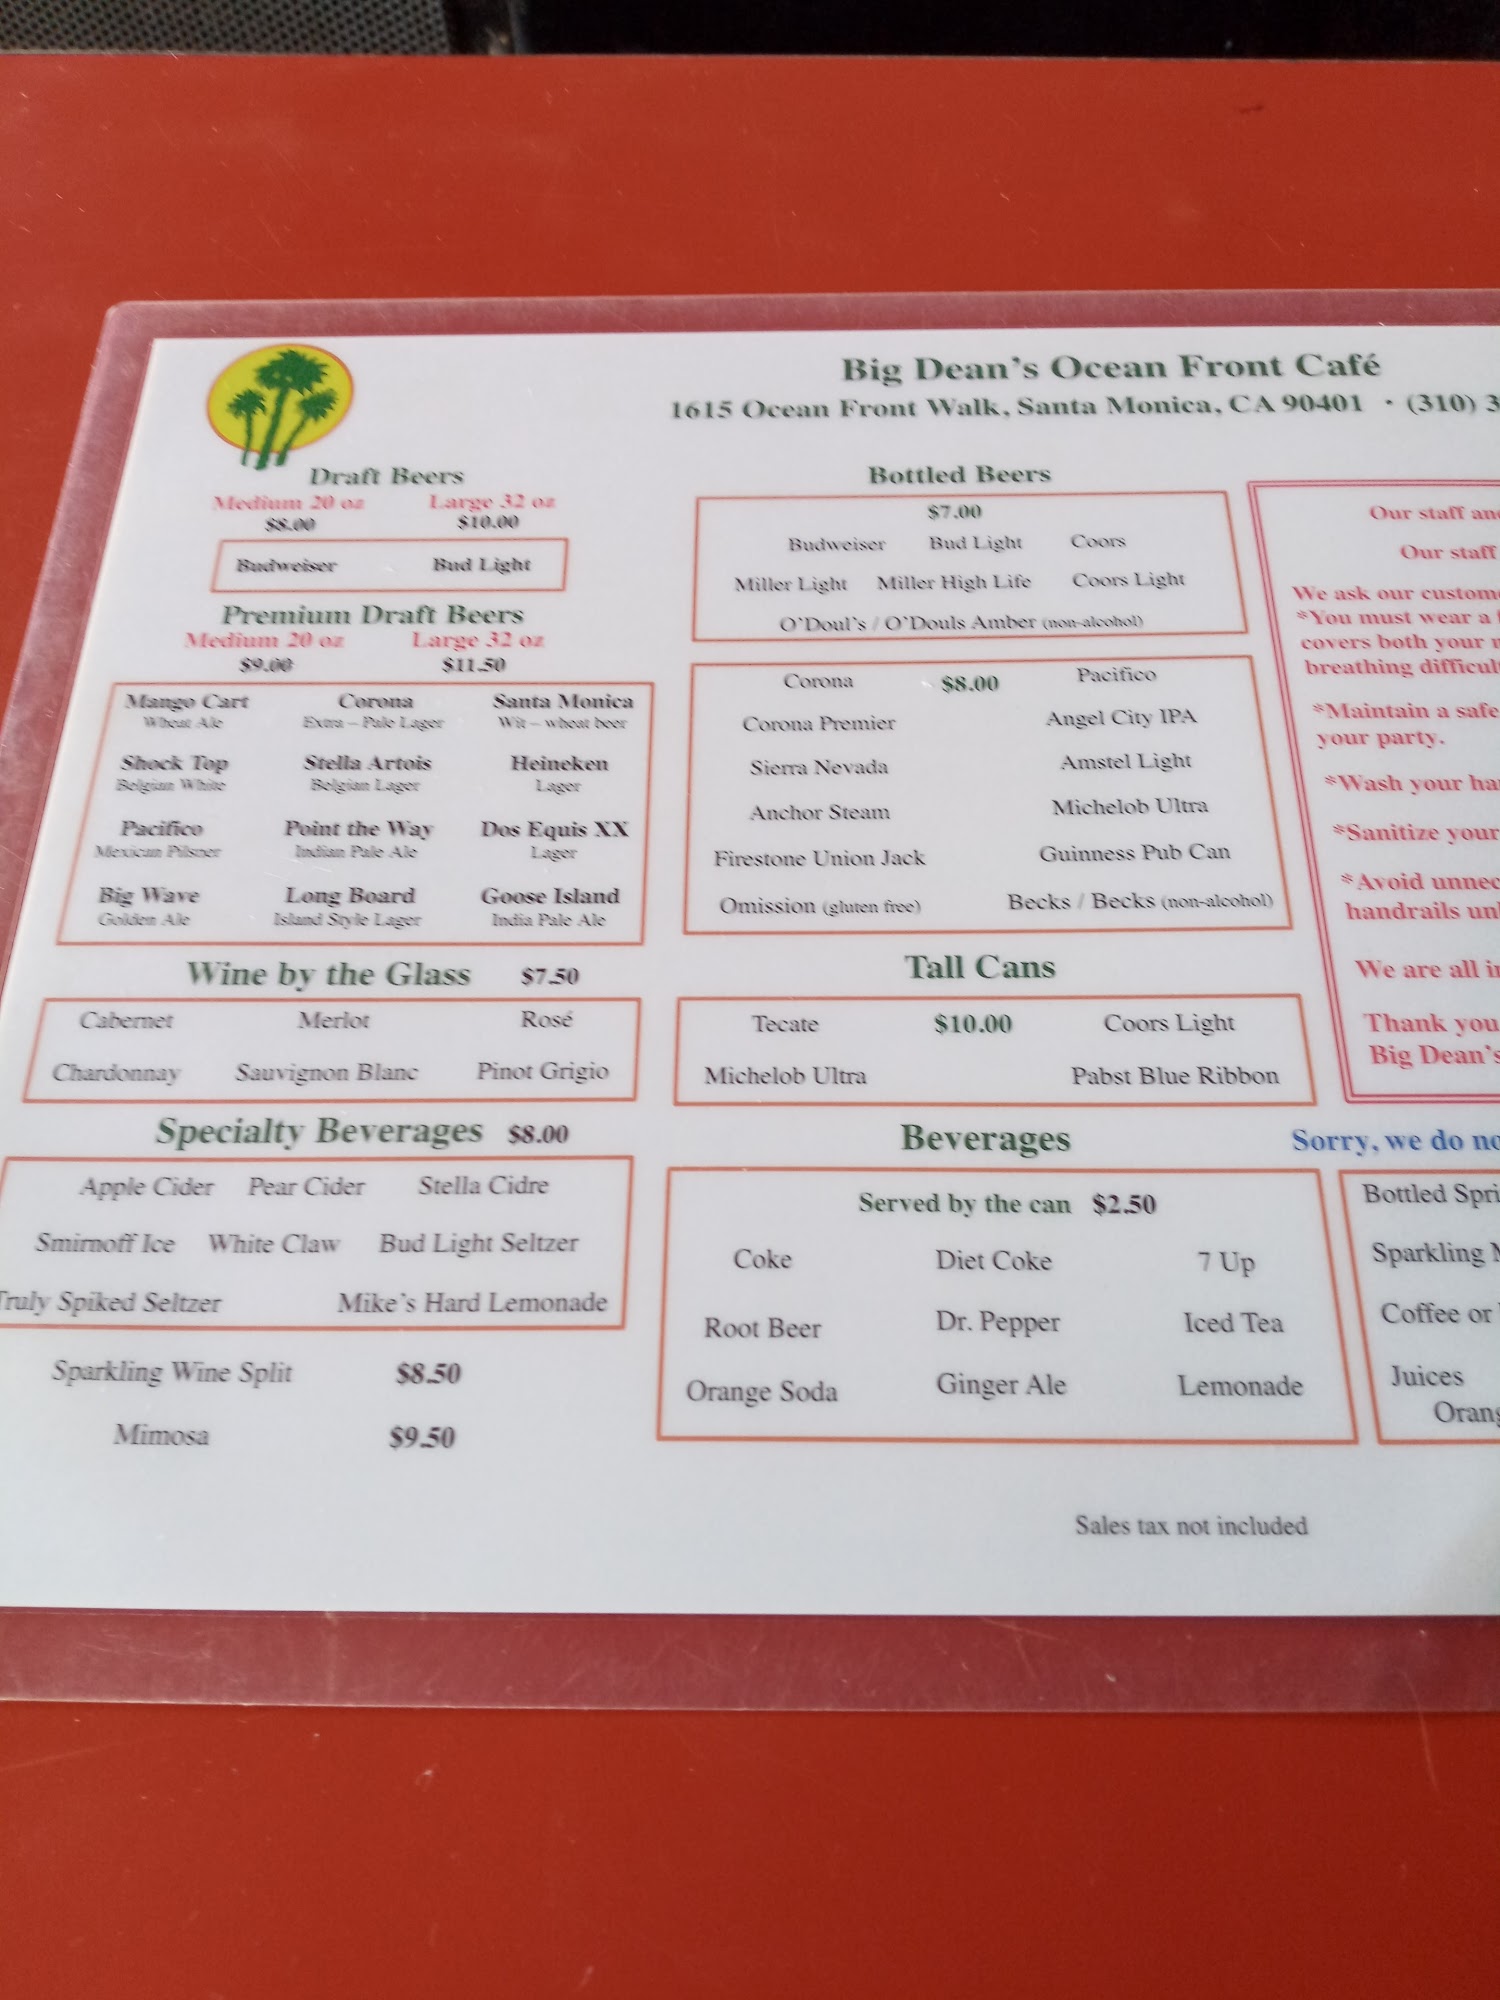 Big Dean's Ocean Front Café
1615 Ocean Front Walk, Santa Monica, CA 90401 · (310) 3
Draft Beers
Medium 20 oz Large 32 oz
$8.00 $10.00
Budweiser Bud Light
Premium Draft Beers
Medium 20 oz Large 32 oz
$9.00 $11.50
Mango Cart Corona Santa Monica
Wheat Ale Extra – Pale Lager Wit – wheat beer
Shock Top Stella Artois Heineken
Belgian White Belgian Lager Lager
Pacifico Point the Way Dos Equis XX
Mexican Pilsner Indian Pale Ale Lager
Big Wave Long Board Goose Island
Golden Ale Island Style Lager India Pale Ale
Wine by the Glass $7.50
Cabernet Merlot Rosé
Chardonnay Sauvignon Blanc Pinot Grigio
Specialty Beverages $8.00
Apple Cider Pear Cider Stella Cidre
Smirnoff Ice White Claw Bud Light Seltzer
Truly Spiked Seltzer Mike's Hard Lemonade
Sparkling Wine Split $8.50
Mimosa $9.50
Bottled Beers
$7.00
Budweiser Bud Light Coors
Miller Light Miller High Life Coors Light
O'Doul's / O'Douls Amber (non-alcohol)
Corona $8.00 Pacifico
Corona Premier Angel City IPA
Sierra Nevada Amstel Light
Anchor Steam Michelob Ultra
Firestone Union Jack Guinness Pub Can
Omission (gluten free) Becks / Becks (non-alcohol)
Tall Cans
Tecate $10.00 Coors Light
Michelob Ultra Pabst Blue Ribbon
Beverages
Served by the can $2.50
Coke Diet Coke 7 Up
Root Beer Dr. Pepper Iced Tea
Orange Soda Ginger Ale Lemonade
Our staff an
Our staff
We ask our custom
*You must wear a
covers both your
breathing difficul
*Maintain a safe
your party.
*Wash your ha
*Sanitize your
*Avoid unnec
handrails un
We are all i
Thank you
Big Dean's
Sorry, we do no
Bottled Spri
Sparkling
Coffee or
Juices
Orang
Sales tax not included